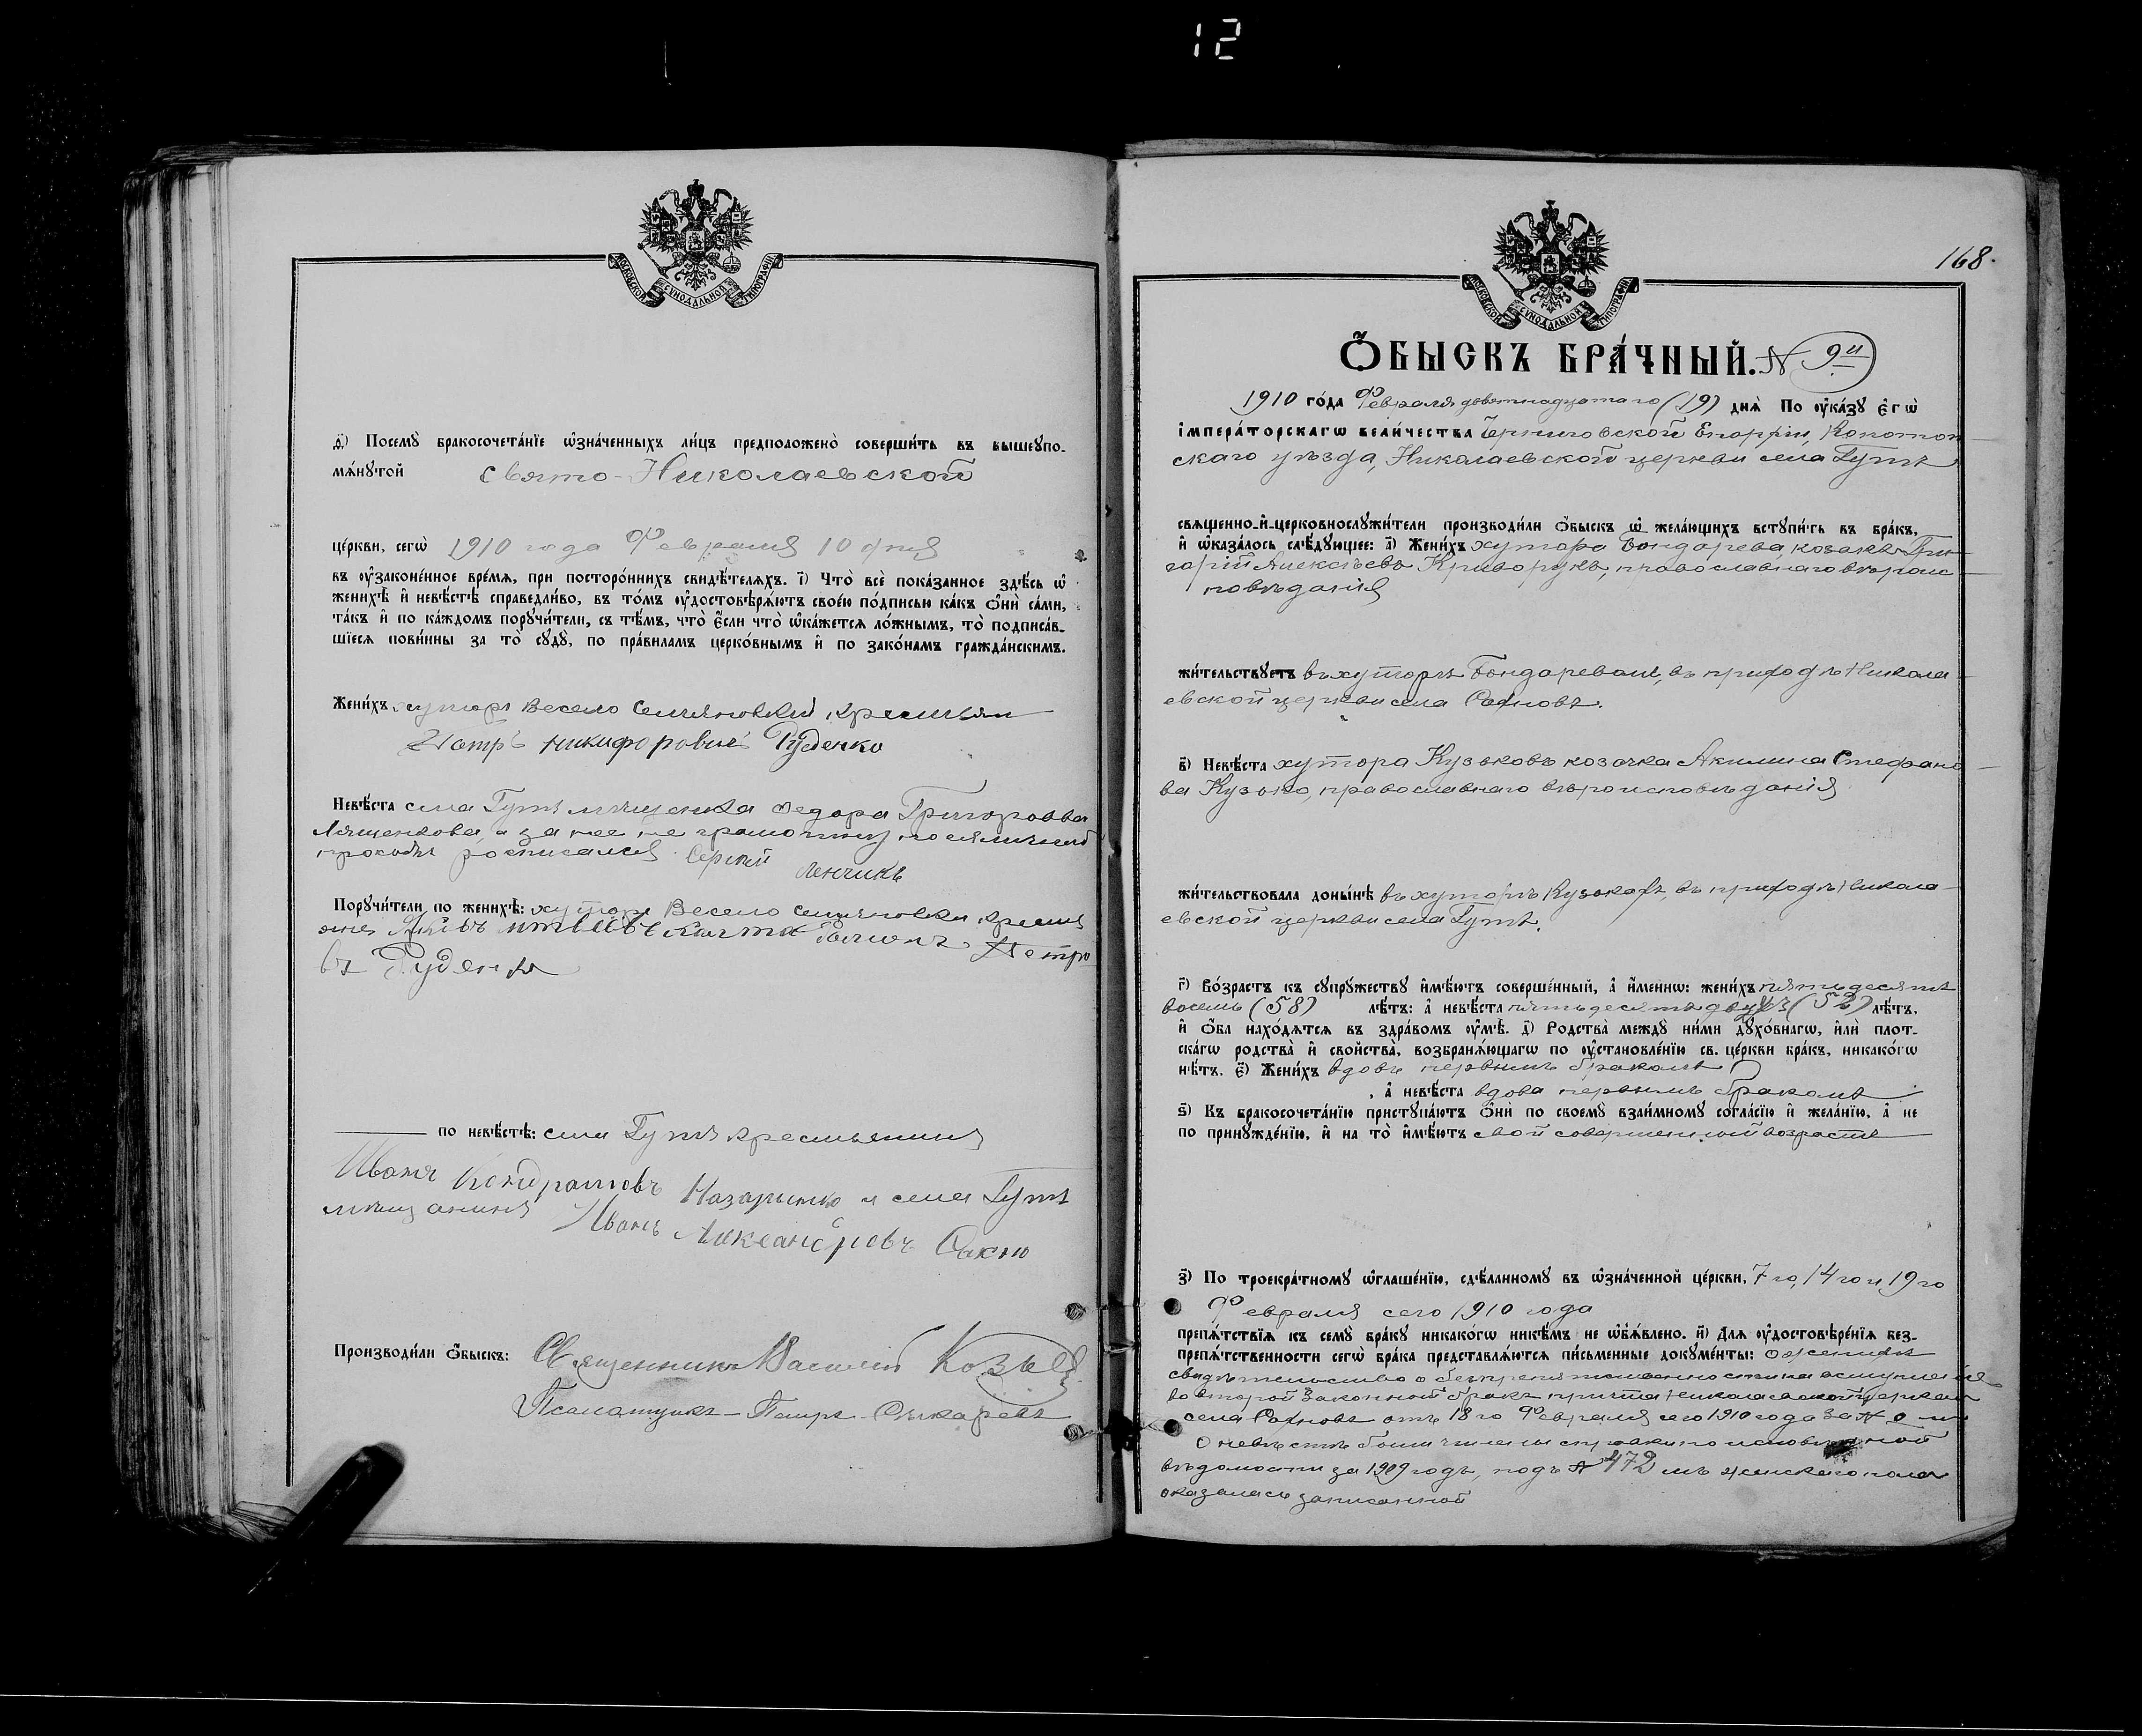 12
МОСКОВСКОЙ СѴНОДАЛЬНОЙ ТИПОГРАФІИ
ѳ҃) Посемꙋ̀ бракосочета́нїе ѡ҆зна́ченныхъ ли́цъ предположено̀ соверши́ть въ вышеꙋпо-
мѧ́нꙋтой свято-Николаевской
це́ркви, сегѡ̀ 1910 года Февраля 10 дня
въ ᲂу҆зако́ненное вре́мѧ, при посторо́ннихъ свидѣ́телѧхъ. і҃) Что̀ всѐ пока́занное здѣ́сь ѡ҆
женихѣ̀ и҆ невѣ́стѣ справедли́во, въ то́мъ ᲂу҆достовѣрѧ́ютъ свое́ю по́дписью ка́къ ѻ҆нѝ са́ми,
та́къ и҆ по ка́ждомъ порꙋчи́тели, съ тѣ́мъ, что̀ є҆́сли что̀ ѡ҆ка́жетсѧ ло́жнымъ, то̀ подписа́в-
шїесѧ пови́нны за то̀ сꙋдꙋ̀, по пра́виламъ церко́внымъ и҆ по зако́намъ гражда́нскимъ.
Жени́хъ хутора Весело
Петръ Никифоровичъ Руденко
Невѣ́ста села Гутъ мещанка Федора Григорова
а за нее не грамотную по ея личной
просьбѣ росписался Сергей Ленчикъ
Порꙋчи́тели по женихѣ̀: хутора Весело
Петро
въ Руденко
по невѣ́стѣ: села Гутъ крестьянинъ
Иванъ Кондратовъ Назаренко и села Гутъ
мещанинъ Иванъ Александровъ Сахно
Производи́ли ѻ҆́быскъ: Священникъ Василий
Псаломщикъ Петръ
168
МОСКОВСКОЙ СѴНОДАЛЬНОЙ ТИПОГРАФІИ
Ѻ҆́БЫСКЪ БРА́ЧНЫЙ. № 9й
1910 го́да Февраля девятнадцатаго (19) днѧ̀ По ᲂу҆ка́зꙋ є҆гѡ̀
і҆мпера́торскагѡ вели́чества Черниговской Епархіи, Конотоп-
скаго уѣзда, Николаевской церкви села Гутъ
свѧщенно-и҆-церковнослꙋжи́тели производи́ли ѻ҆́быскъ ѡ҆ жела́ющихъ встꙋпи́ть въ бра́къ,
и҆ ѡ҆каза́лось слѣ́дꙋющее: а҃) Жени́хъ хутора Бондарева, козакъ Гри-
горій Алексѣевъ Криворукъ, православнаго вѣроис-
повѣданія
жи́тельствꙋетъ въ хуторѣ Бондаревомъ, въ приходѣ Никола-
евской церкви села
в҃) Невѣ́ста хутора Кузьковъ козачка Акилина Стефано-
ва Кузько, православнаго вѣроисповѣданія
жи́тельствовала доны́нѣ въ хуторѣ Кузькахъ, въ приходѣ Никола-
евской церкви села Гутъ.
г҃) Во́зрастъ къ сꙋпрꙋ́жествꙋ и҆мѣ́ютъ соверше́нный, а҆ и҆́меннѡ: жени́хъ пятьдесятъ
восемь (58) лѣ́тъ: а҆ невѣ́ста пятьдесятъ двухъ (52) лѣ́тъ,
и҆ ѻ҆́ба нахо́дѧтсѧ въ здра́вомъ ᲂу҆мѣ̀. д҃) Родства̀ междꙋ ни́ми дꙋхо́внагѡ, и҆лѝ плот-
ска́гѡ родства̀ и҆ сво́йства̀, возбранѧ́ющагѡ по ᲂу҆становле́нїю св. це́ркви бра́къ, никако́гѡ
нѣ́тъ. є҃) Жени́хъ вдовъ первымъ бракомъ
, а҆ невѣ́ста вдова первымъ бракомъ
ѕ҃) Къ бракосочета́нїю пристꙋпа́ютъ ѻ҆нѝ по своемꙋ̀ взаи́мномꙋ согла́сїю и҆ жела́нїю, а҆ не
по принꙋжде́нїю, и҆ на то̀ и҆мѣ́ютъ свой совершенный возрастъ
з҃) По троекра́тномꙋ ѡ҆глаше́нїю, сдѣ́ланномꙋ въ ѡ҆зна́ченной це́ркви, 7го, 14го и 19го
Февраля сего 1910 года
препѧ́тствїѧ къ семꙋ̀ бра́кꙋ никако́гѡ никѣ́мъ не ѡ҆б̾ѧ́влено. и҃) Длѧ ᲂу҆достовѣре́нїѧ без-
препѧ́тственности сегѡ̀ бра́ка представлѧ́ютсѧ пи́сьменные докꙋме́нты: о женихѣ
свидѣтельство о безпрепятственности на вступленіе
во второй законный бракъ причта Николаевской церкви
села отъ 18го Февраля сего 1910 года за №
о невѣстѣ были чинены справки по исповѣдной
вѣдомости за 1909 годъ, подъ № 472 мъ женскаго пола
оказалась записанной